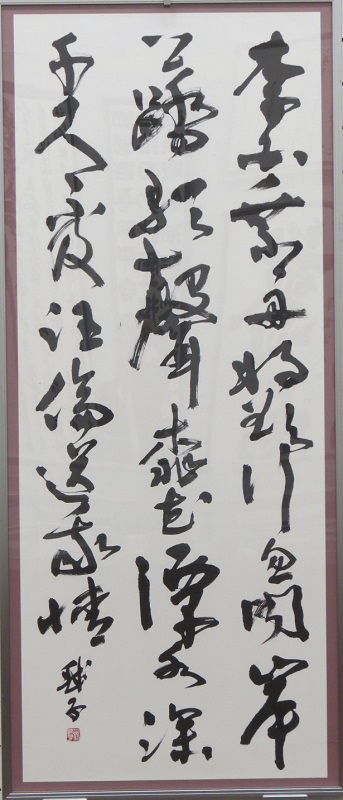 李白乘舟将欲行忽聞岸
上踏歌聲桃花潭水深
千尺不及汪倫送我情